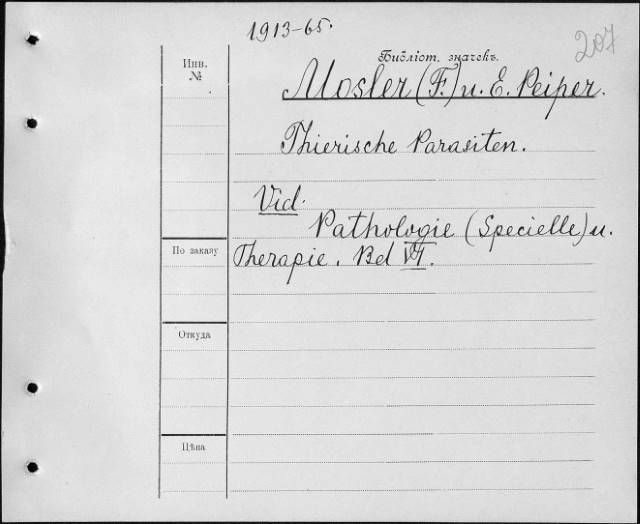 1913-65.
207
Библіот. значекъ.
Инв.
№
Mosler (F.) u. E. Peiper.
Thierische Parasiten.
Vid.
Pathologie (Specielle) u.
По заказу
Therapie. Bd VI.
Откуда
Цѣна